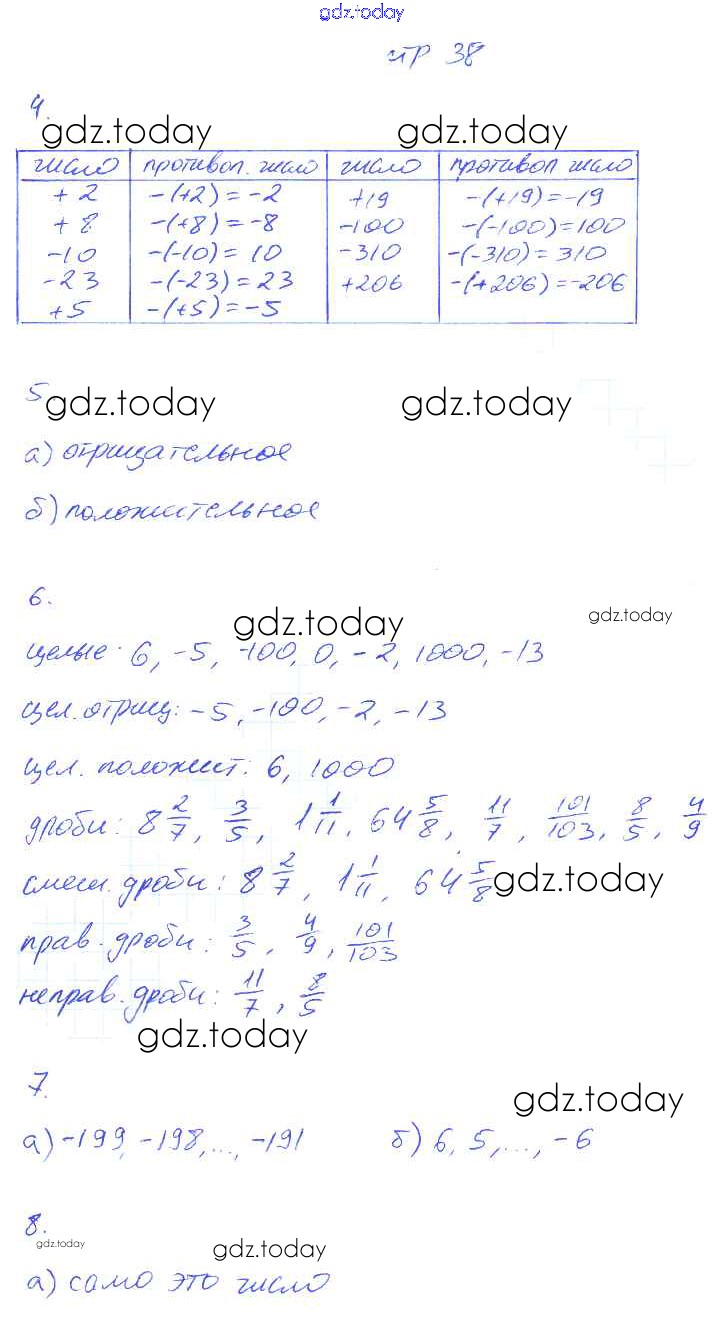 gdz.today
стр 38
4.
gdz.today gdz.today
число противоп. число число противоп число
+2 -(+2)=-2 +19 -(+19)=-19
+8 -(+8)=-8 -100 -(-100)=100
-10 -(-10)=10 -310 -(-310)=310
-23 -(-23)=23 +206 -(+206)=-206
+5 -(+5)=-5
5 gdz.today gdz.today
а) отрицательное
б) положительное
6.
gdz.today gdz.today
целые: 6, -5, -100, 0, -2, 1000, -13
цел. отриц: -5, -100, -2, -13
цел. положит: 6, 1000
дроби: 8 2/7, 3/5, 1 1/11, 64 5/8, 11/7, 101/103, 8/5, 4/9
смеш. дроби: 8 2/7, 1 1/11, 64 5/8 gdz.today
прав. дроби: 3/5, 4/9, 101/103
неправ. дроби: 11/7, 8/5
gdz.today
7.
gdz.today
а) -199, -198, ..., -191 б) 6, 5, ..., -6
8.
gdz.today gdz.today
а) само это число